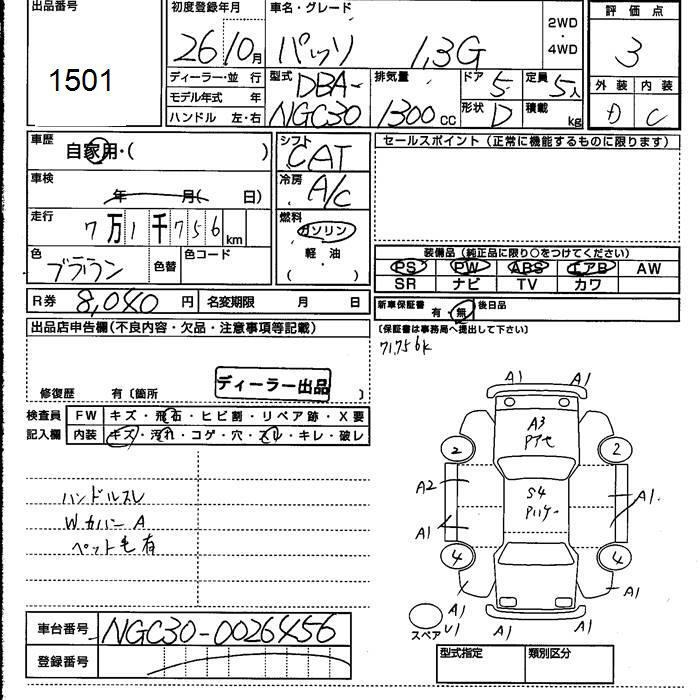 出品番号
1501
初度登録年月
26 10月
車名・グレード
パッソ 1,3G
2WD
・
4WD
評価点
3
外装 内装
D C
ディーラー・並行
モデル年式 年
ハンドル 左・右
型式
DBA-
NGC30
排気量
1300cc
ドア 5
形状 D
定員 5人
積載 kg
車歴
自家用・( )
車検
年 月( 日)
走行
7万1千756km
色
ブラウン
色替
色コード
シフト
CAT
冷房
A/C
燃料
ガソリン
・
軽油
・
( )
セールスポイント (正常に機能するものに限ります)
装備品(純正品に限り○をつけてください)
PS PW ABS エアB AW
SR ナビ TV カワ
R券 8,040 円
名変期限 月 日
新車保証書 有・無
後日品
(保証書は事務局へ提出して下さい)
71,756k
出品店申告欄(不良内容・欠品・注意事項等記載)
ディーラー出品
修復歴 有〔箇所 〕
検査員
記入欄
FW キズ・飛石・ヒビ割・リペア跡・X要
内装 キズ・汚れ・コゲ・穴・スレ・キレ・破レ
ハンドルスレ
WカバーA
ペット毛有
A1 A1
A3
Pアセ
2 2
A2
S4
A1.
A1
4 4
A1
A1
A1
U1
スペア
車台番号 NGC30-0026456
登録番号
型式指定 類別区分